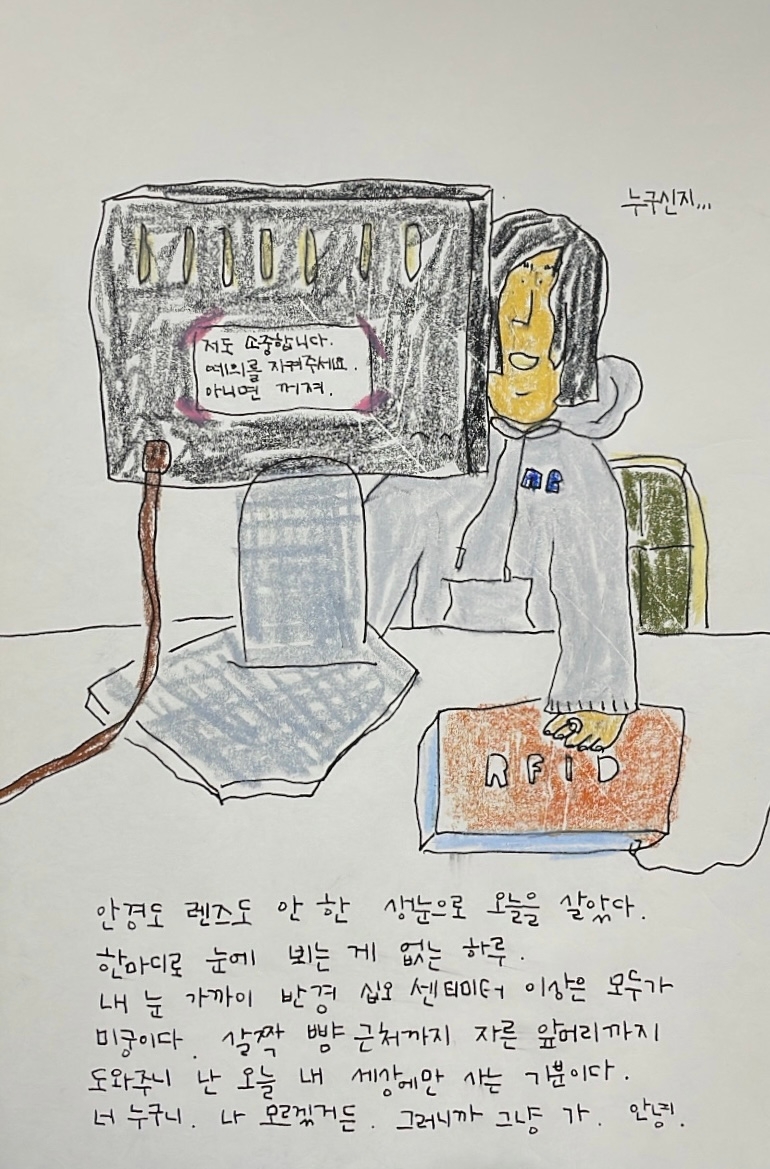 누구신지...
저도 소중합니다.
예의를 지켜주세요.
아니면 꺼져.
ME
RFID
안경도 렌즈도 안 한 생눈으로 오늘을 살았다.
한마디로 눈에 뵈는 게 없는 하루.
내 눈 가까이 반경 십오 센티미터 이상은 모두가
미궁이다. 살짝 뺨 근처까지 자른 앞머리까지
도와주니 난 오늘 내 세상에만 사는 기분이다.
너 누구니. 나 모르겠거든. 그러니까 그냥 가. 안녕.